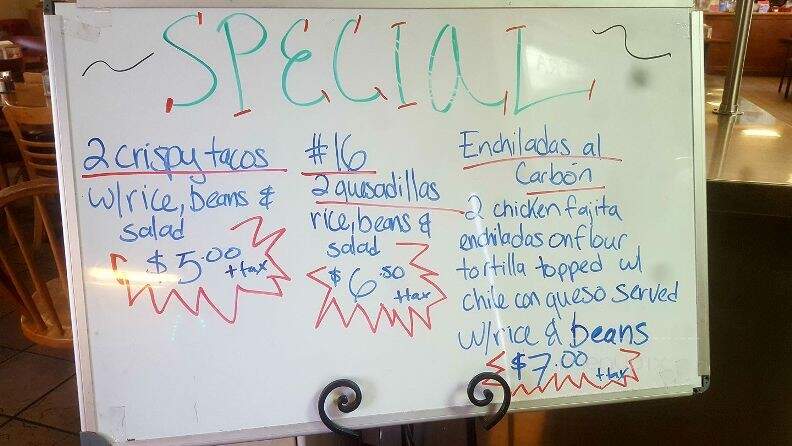 SPECIAL
2 crispy tacos
w/rice, beans &
salad
$5.00
+tax
#16
2 quesadillas
rice, beans &
salad
$6.50
+tax
Enchiladas al
Carbón
2 chicken fajita
enchiladas on flour
tortilla topped w/
chile con queso served
w/rice & beans
$7.00
+tax